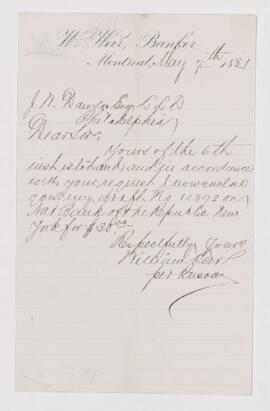 W. Weir, Banker,
Montreal, May 7th 1881
J. W. Dawson Esq LLD
Philadelphia
Dear Sir,
Yours of the 6th
inst is to hand, and in accordance
with your request I now enclose
you my draft No. 10392 on
Nat Bank of the Republic New
York for $30
Respectfully Yours
William Weir
per